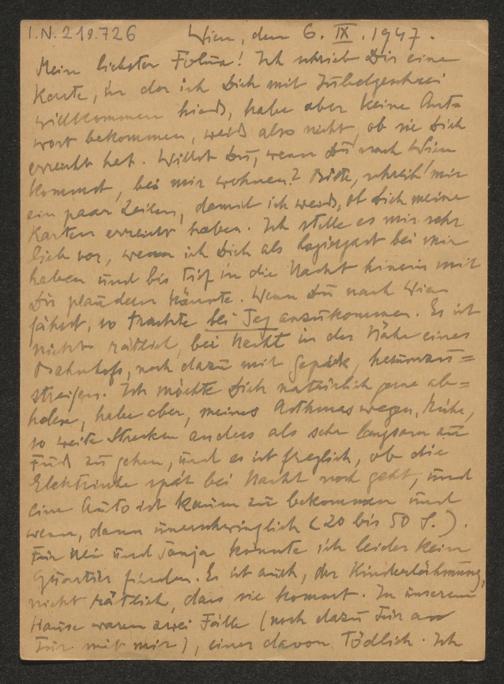 I.N. 219.726
Wien, den 6. IX. 1947.
Mein liebster Folma! Ich schrieb Dir eine
Karte, in der ich Dich mit Jubelgeschrei
willkommen hieß, habe aber keine Ant-
wort bekommen, weiß also nicht, ob sie Dich
erreicht hat. Willst Du, wenn Du nach Wien
kommst, bei mir wohnen? Bitte, schreib' mir
ein paar Zeilen, damit ich weiß, ob Dich meine
Karten erreicht haben. Ich stelle es mir sehr
lieb vor, wenn ich Dich als Logiergast bei mir
haben und bis tief in die Nacht hinein mit
Dir plaudern könnte. Wenn Du nach Wien
fährst, so trachte bei Tag anzukommen. Es ist
nicht rätlich, bei Nacht in der Nähe eines
Bahnhofs, noch dazu mit Gepäck, herumzu=
steigen. Ich möchte Dich natürlich gerne ab=
holen, habe aber, meines Asthmas wegen, Mühe,
so weite Strecken anders als sehr langsam zu
Fuß zu gehen, und es ist fraglich, ob die
Elektrische spät bei Nacht noch geht, und
ein Auto ist kaum zu bekommen und
wenn, dann unerschwinglich (20 bis 50 S.).
Für und Sonja konnte ich leider kein
Quartier finden. Es ist auch, der Kinderlähmung,
nicht rätlich, dass sie kommt. In unserem
Hause waren zwei Fälle (noch dazu Tür an
Tür mit mir), einer davon tödlich. Ich